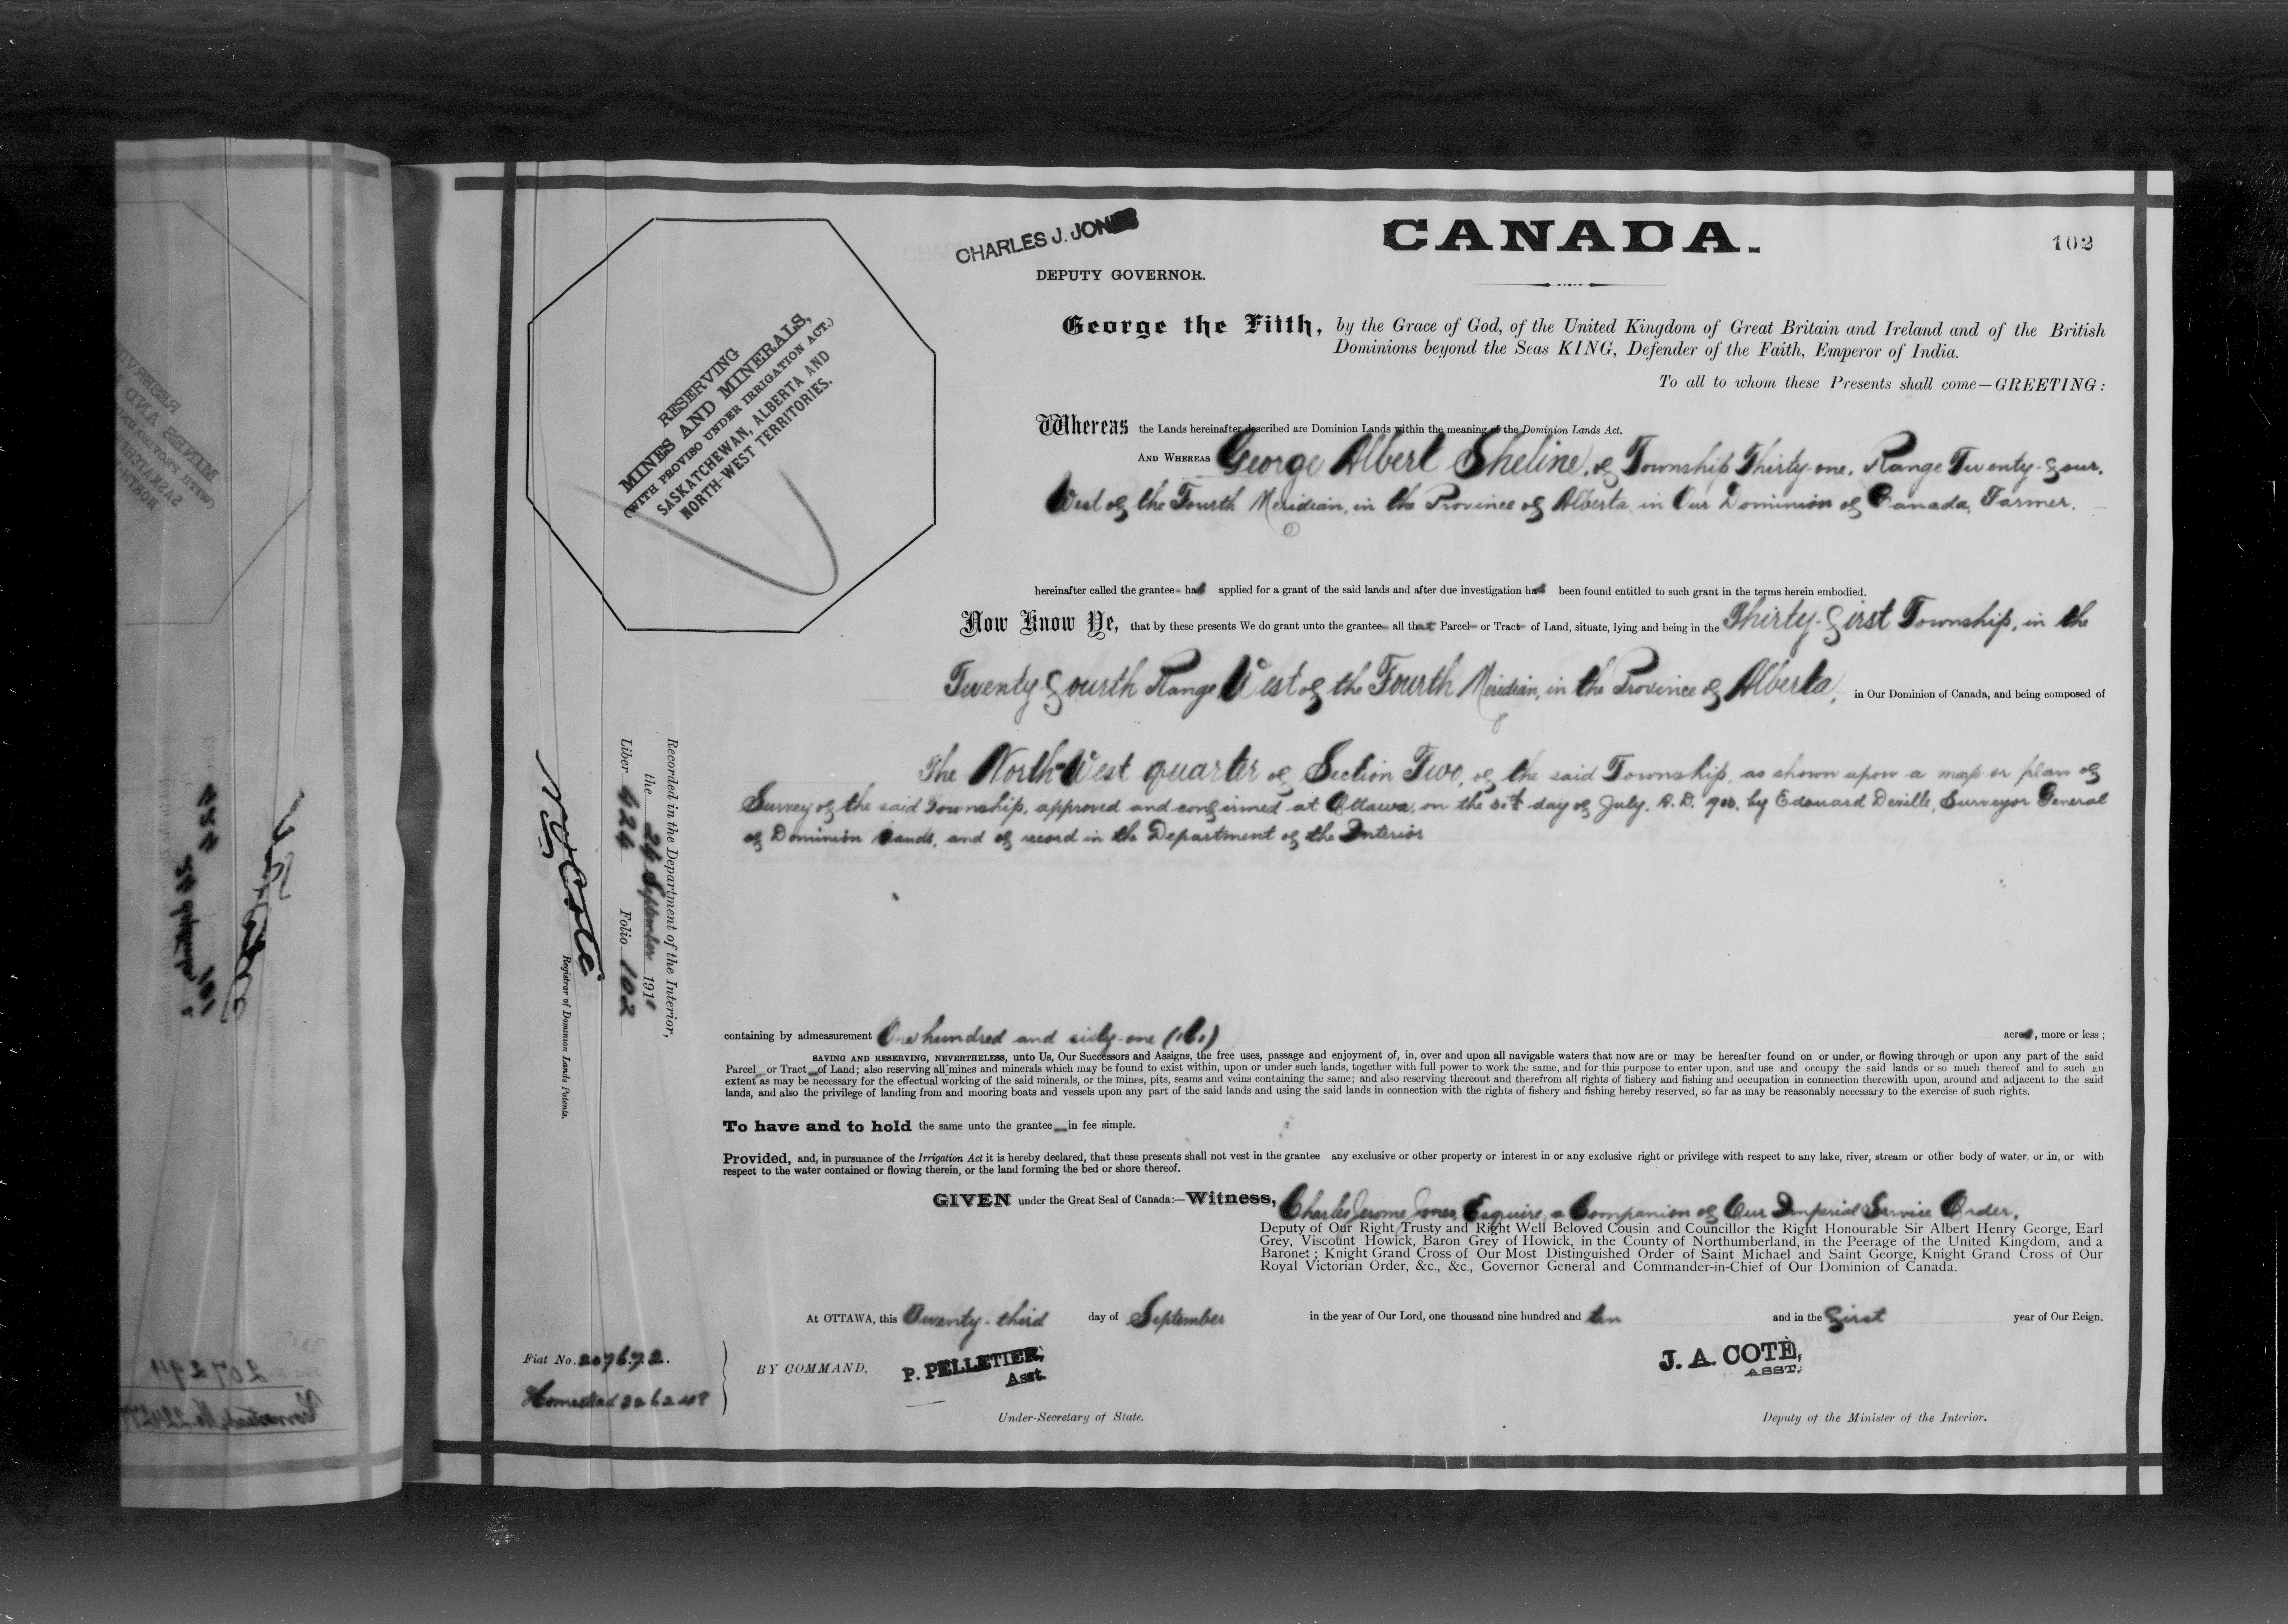 CANADA.
102
CHARLES J. JONES
DEPUTY GOVERNOR.
RESERVING
MINES AND MINERALS,
(WITH PROVISO UNDER IRRIGATION ACT.)
SASKATCHEWAN, ALBERTA AND
NORTH-WEST TERRITORIES.
George the Fifth, by the Grace of God, of the United Kingdom of Great Britain and Ireland and of the British
Dominions beyond the Seas KING, Defender of the Faith, Emperor of India.
To all to whom these Presents shall come—GREETING:
Whereas the Lands hereinafter described are Dominion Lands within the meaning of the Dominion Lands Act.
AND WHEREAS George Albert Sheline, of Township Thirty-one, Range Twenty-four,
West of the Fourth Meridian, in the Province of Alberta, in Our Dominion of Canada, Farmer,
hereinafter called the grantee has applied for a grant of the said lands and after due investigation has been found entitled to such grant in the terms herein embodied.
Now Know Ye, that by these presents We do grant unto the grantee all that Parcel or Tract of Land, situate, lying and being in the Thirty-first Township, in the
Twenty-fourth Range West of the Fourth Meridian, in the Province of Alberta, in Our Dominion of Canada, and being composed of
The North-West quarter of Section Two, of the said Township, as shown upon a map or plan of
Survey of the said Township, approved and confirmed at Ottawa, on the day of July, A.D. by Edouard Deville, Surveyor General
of Dominion Lands, and of record in the Department of the Interior
containing by admeasurement One hundred and sixty-one (161) acres, more or less;
SAVING AND RESERVING, NEVERTHELESS, unto Us, Our Successors and Assigns, the free uses, passage and enjoyment of, in, over and upon all navigable waters that now are or may be hereafter found on or under, or flowing through or upon any part of the said
Parcel or Tract of Land; also reserving all mines and minerals which may be found to exist within, upon or under such lands, together with full power to work the same, and for this purpose to enter upon, and use and occupy the said lands or so much thereof and to such an
extent as may be necessary for the effectual working of the said minerals, or the mines, pits, seams and veins containing the same; and also reserving thereout and therefrom all rights of fishery and fishing and occupation in connection therewith upon, around and adjacent to the said
lands, and also the privilege of landing from and mooring boats and vessels upon any part of the said lands and using the said lands in connection with the rights of fishery and fishing hereby reserved, so far as may be reasonably necessary to the exercise of such rights.
To have and to hold the same unto the grantee in fee simple.
Provided, and, in pursuance of the Irrigation Act it is hereby declared, that these presents shall not vest in the grantee any exclusive or other property or interest in or any exclusive right or privilege with respect to any lake, river, stream or other body of water, or in, or with
respect to the water contained or flowing therein, or the land forming the bed or shore thereof.
GIVEN under the Great Seal of Canada:—Witness, Charles Jerome Jones, Esquire, a Companion of Our Imperial Service Order,
Deputy of Our Right Trusty and Right Well Beloved Cousin and Councillor the Right Honourable Sir Albert Henry George, Earl
Grey, Viscount Howick, Baron Grey of Howick, in the County of Northumberland, in the Peerage of the United Kingdom, and a
Baronet; Knight Grand Cross of Our Most Distinguished Order of Saint Michael and Saint George, Knight Grand Cross of Our
Royal Victorian Order, &c., &c., Governor General and Commander-in-Chief of Our Dominion of Canada.
At OTTAWA, this Twenty-third day of September in the year of Our Lord, one thousand nine hundred and ten and in the First year of Our Reign.
Fiat No. 207672.
Homestead
BY COMMAND,
P. PELLETIER,
Asst.
Under-Secretary of State.
J. A. COTÉ,
ASST.
Deputy of the Minister of the Interior.
Recorded in the Department of the Interior,
the 24 September 1910
Liber 424 Folio 102
Coté
Registrar of Dominion Lands Patents.